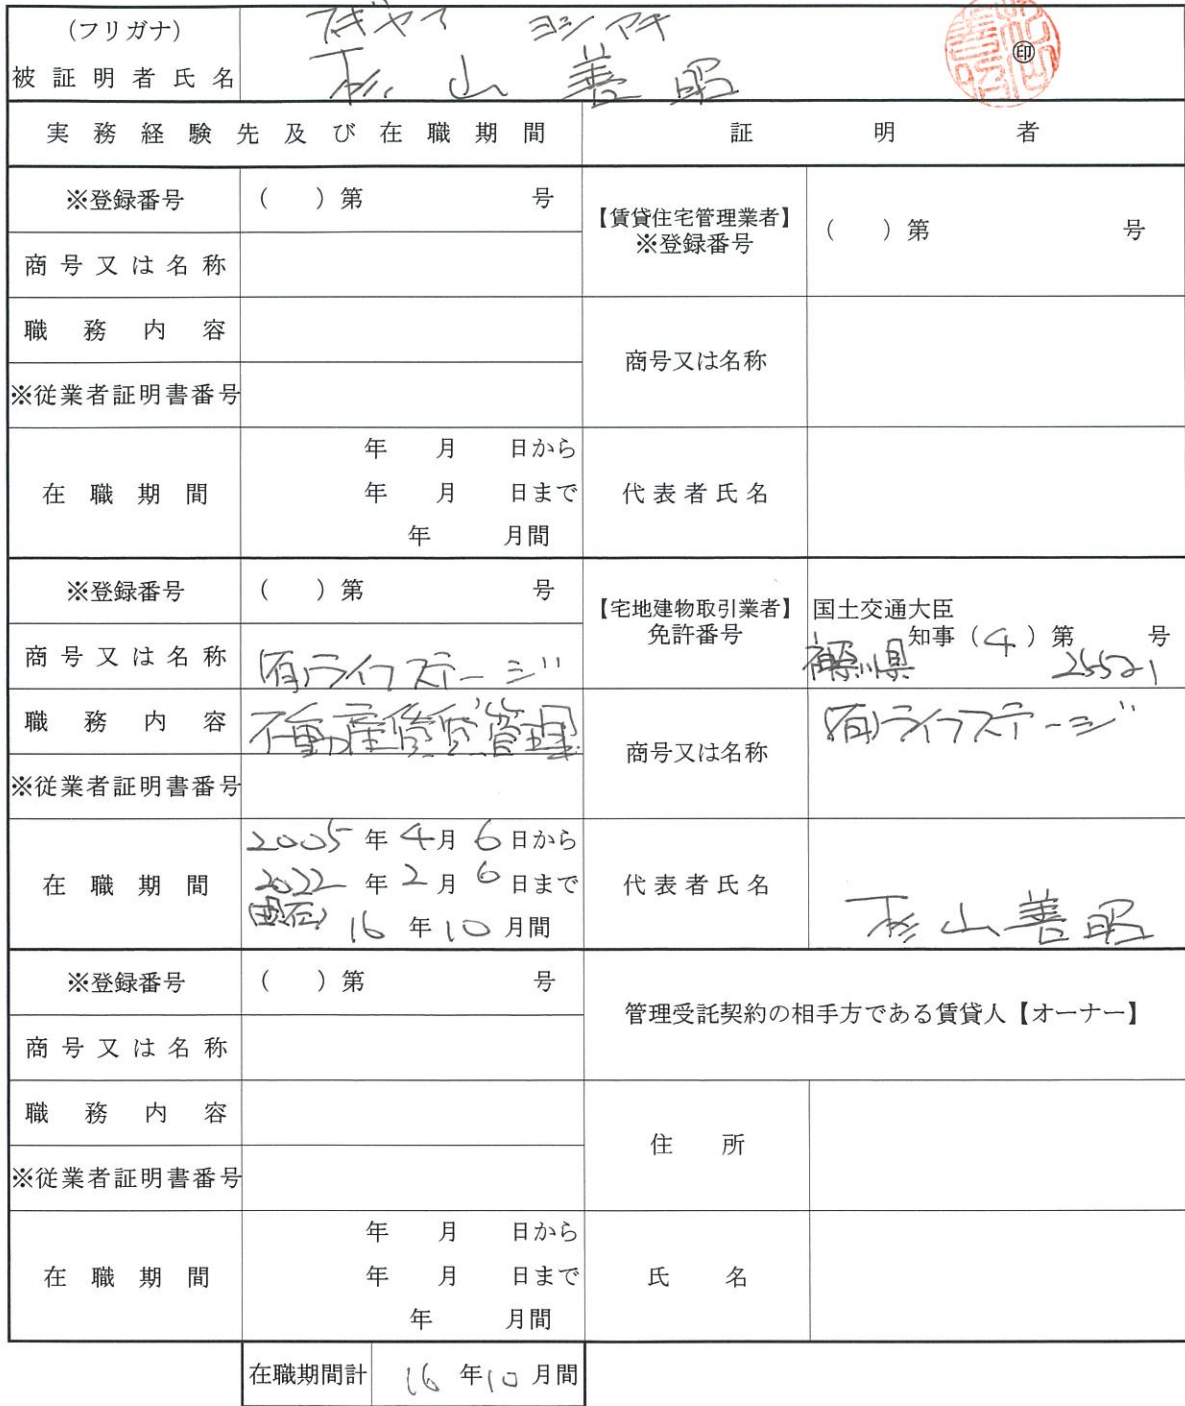 (フリガナ) スギヤマ ヨシアキ
被証明者氏名 杉山 善昭 ㊞
実務経験先及び在職期間 証明者
※登録番号 ( )第 号
【賃貸住宅管理業者】
※登録番号 ( )第 号
商号又は名称
職務内容
商号又は名称
※従業者証明書番号
在職期間
年 月 日から
年 月 日まで
年 月間
代表者氏名
※登録番号 ( )第 号
【宅地建物取引業者】
免許番号
国土交通大臣
神奈川県 知事(4)第 25521 号
商号又は名称 (有)ライフステージ
職務内容 不動産賃貸管理
商号又は名称 (有)ライフステージ
※従業者証明書番号
在職期間
2005年4月6日から
2022年2月6日まで
(現在) 16年10月間
代表者氏名 杉山善昭
※登録番号 ( )第 号
管理受託契約の相手方である賃貸人【オーナー】
商号又は名称
職務内容
住所
※従業者証明書番号
在職期間
年 月 日から
年 月 日まで
年 月間
氏名
在職期間計 16年10月間